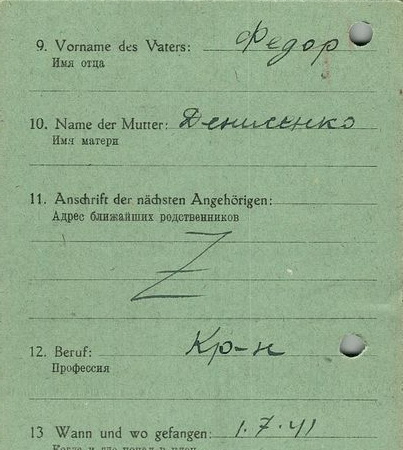 9. Vorname des Vaters: Федор
Имя отца
10. Name der Mutter: Денисенко
Имя матери
11. Anschrift der nächsten Angehörigen:
Адрес ближайших родственников
Z
12. Beruf: Кр-н
Профессия
13 Wann und wo gefangen: 1.7.41
Когда и где попал в плен